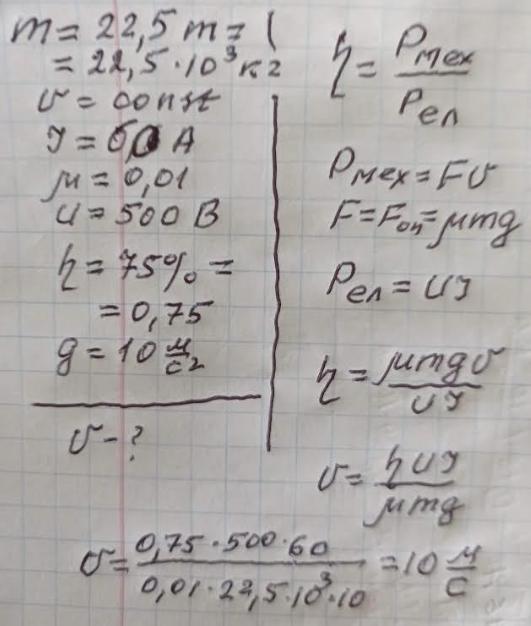 m = 22,5 т =
= 22,5·10³ кг
v = const
I = 60 A
μ = 0,01
U = 500 В
η = 75% =
= 0,75
g = 10 м/с²
v - ?
η = Pмех / Pел
Pмех = Fv
F = Fоп = μmg
Pел = UI
η = μmgv / UI
v = ηUI / μmg
v = 0,75·500·60 / 0,01·22,5·10³·10 = 10 м/с